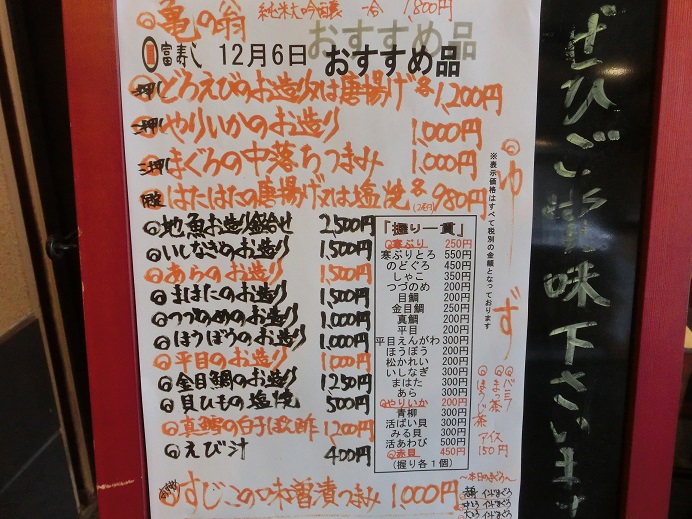 亀の翁 純米大吟醸 一合 1,800円
富寿し 12月6日 おすすめ品
一押し どろえびのお造り又は唐揚げ 各1,200円
二押し やりいかのお造り 1,000円
三押し まぐろの中落ちつまみ 1,000円
はたはたの唐揚げ又は塩焼 各(2尾) 980円
地魚お造り盛合せ 2,500円
いしなぎのお造り 1,500円
あらのお造り 1,500円
まはたのお造り 1,500円
つづめのお造り 1,000円
ほうぼうのお造り 1,000円
平目のお造り 1,000円
金目鯛のお造り 1,250円
貝ひもの塩焼 500円
真鱈の白子ぽん酢 1,200円
えび汁 400円
すじこの味噌漬つまみ 1,000円
「握り一貫」
寒ぶり 250円
寒ぶりとろ 550円
のどぐろ 450円
しゃこ 350円
つづのめ 200円
目鯛 200円
金目鯛 300円
真鯛 200円
平目 200円
平目えんがわ 300円
ほうぼう 200円
松かれい 200円
いしなぎ 300円
まはた 300円
あら 300円
やりいか 200円
青柳 300円
活ばい貝 300円
みる貝 300円
活あわび 500円
赤貝 450円
(握り各1個)
※表示価格はすべて税別の金額となっております
ゆず
バニラ
まっ茶
ほうじ茶
アイス
150円
~本日のまぐろ~
赤身 インドまぐろ
中とろ インドまぐろ
大とろ インドまぐろ
ぜひご賞味下さいませ